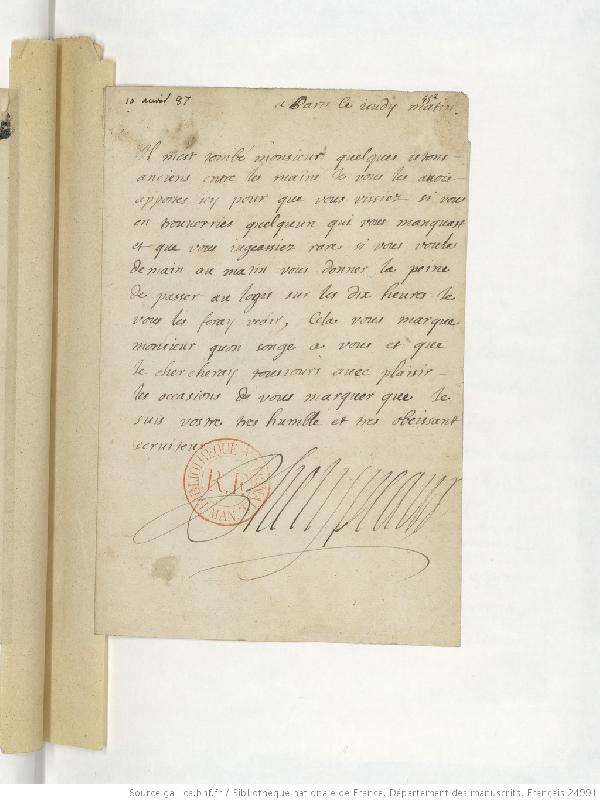 10 avril 87
a Paris le ieudy matin.
Il mest tombé monsieur quelques iettons
anciens entre les mains Ie vous les avois
apportes icy pour que vous vissiez si vous
en trouveries quelqueun qui vous manquast
et que vous iugeassiez rare si vous voules
demain au matin vous donner la peine
de passer au logis sur les dix heures Ie
vous les feray voir, Cela vous marque
monsieur quon songe a vous et que
Ie chercheray tousiours avec plaisir
les occasions de vous marquer que Ie
suis vostre tres humble et tres obeissant
serviteur
BIBLIOTHEQUE NATIONALE
R.F.
MAN.
Source gallica.bnf.fr / Bibliothèque nationale de France. Département des manuscrits. Français 24991